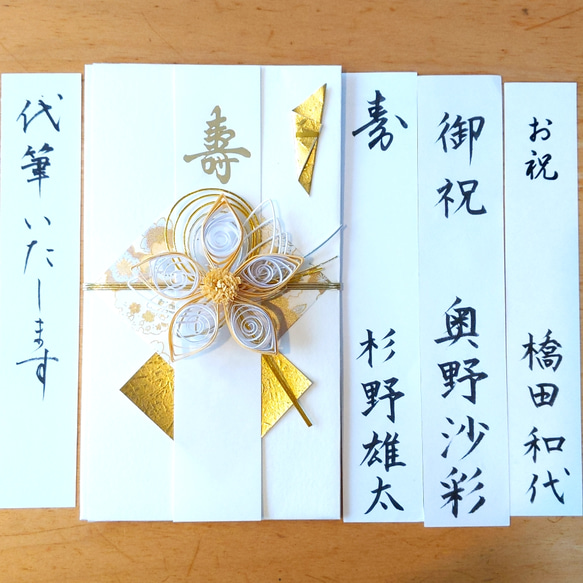 代筆いたします
寿
寿
杉野雄太
御祝
奥野沙彩
お祝
橋田和代